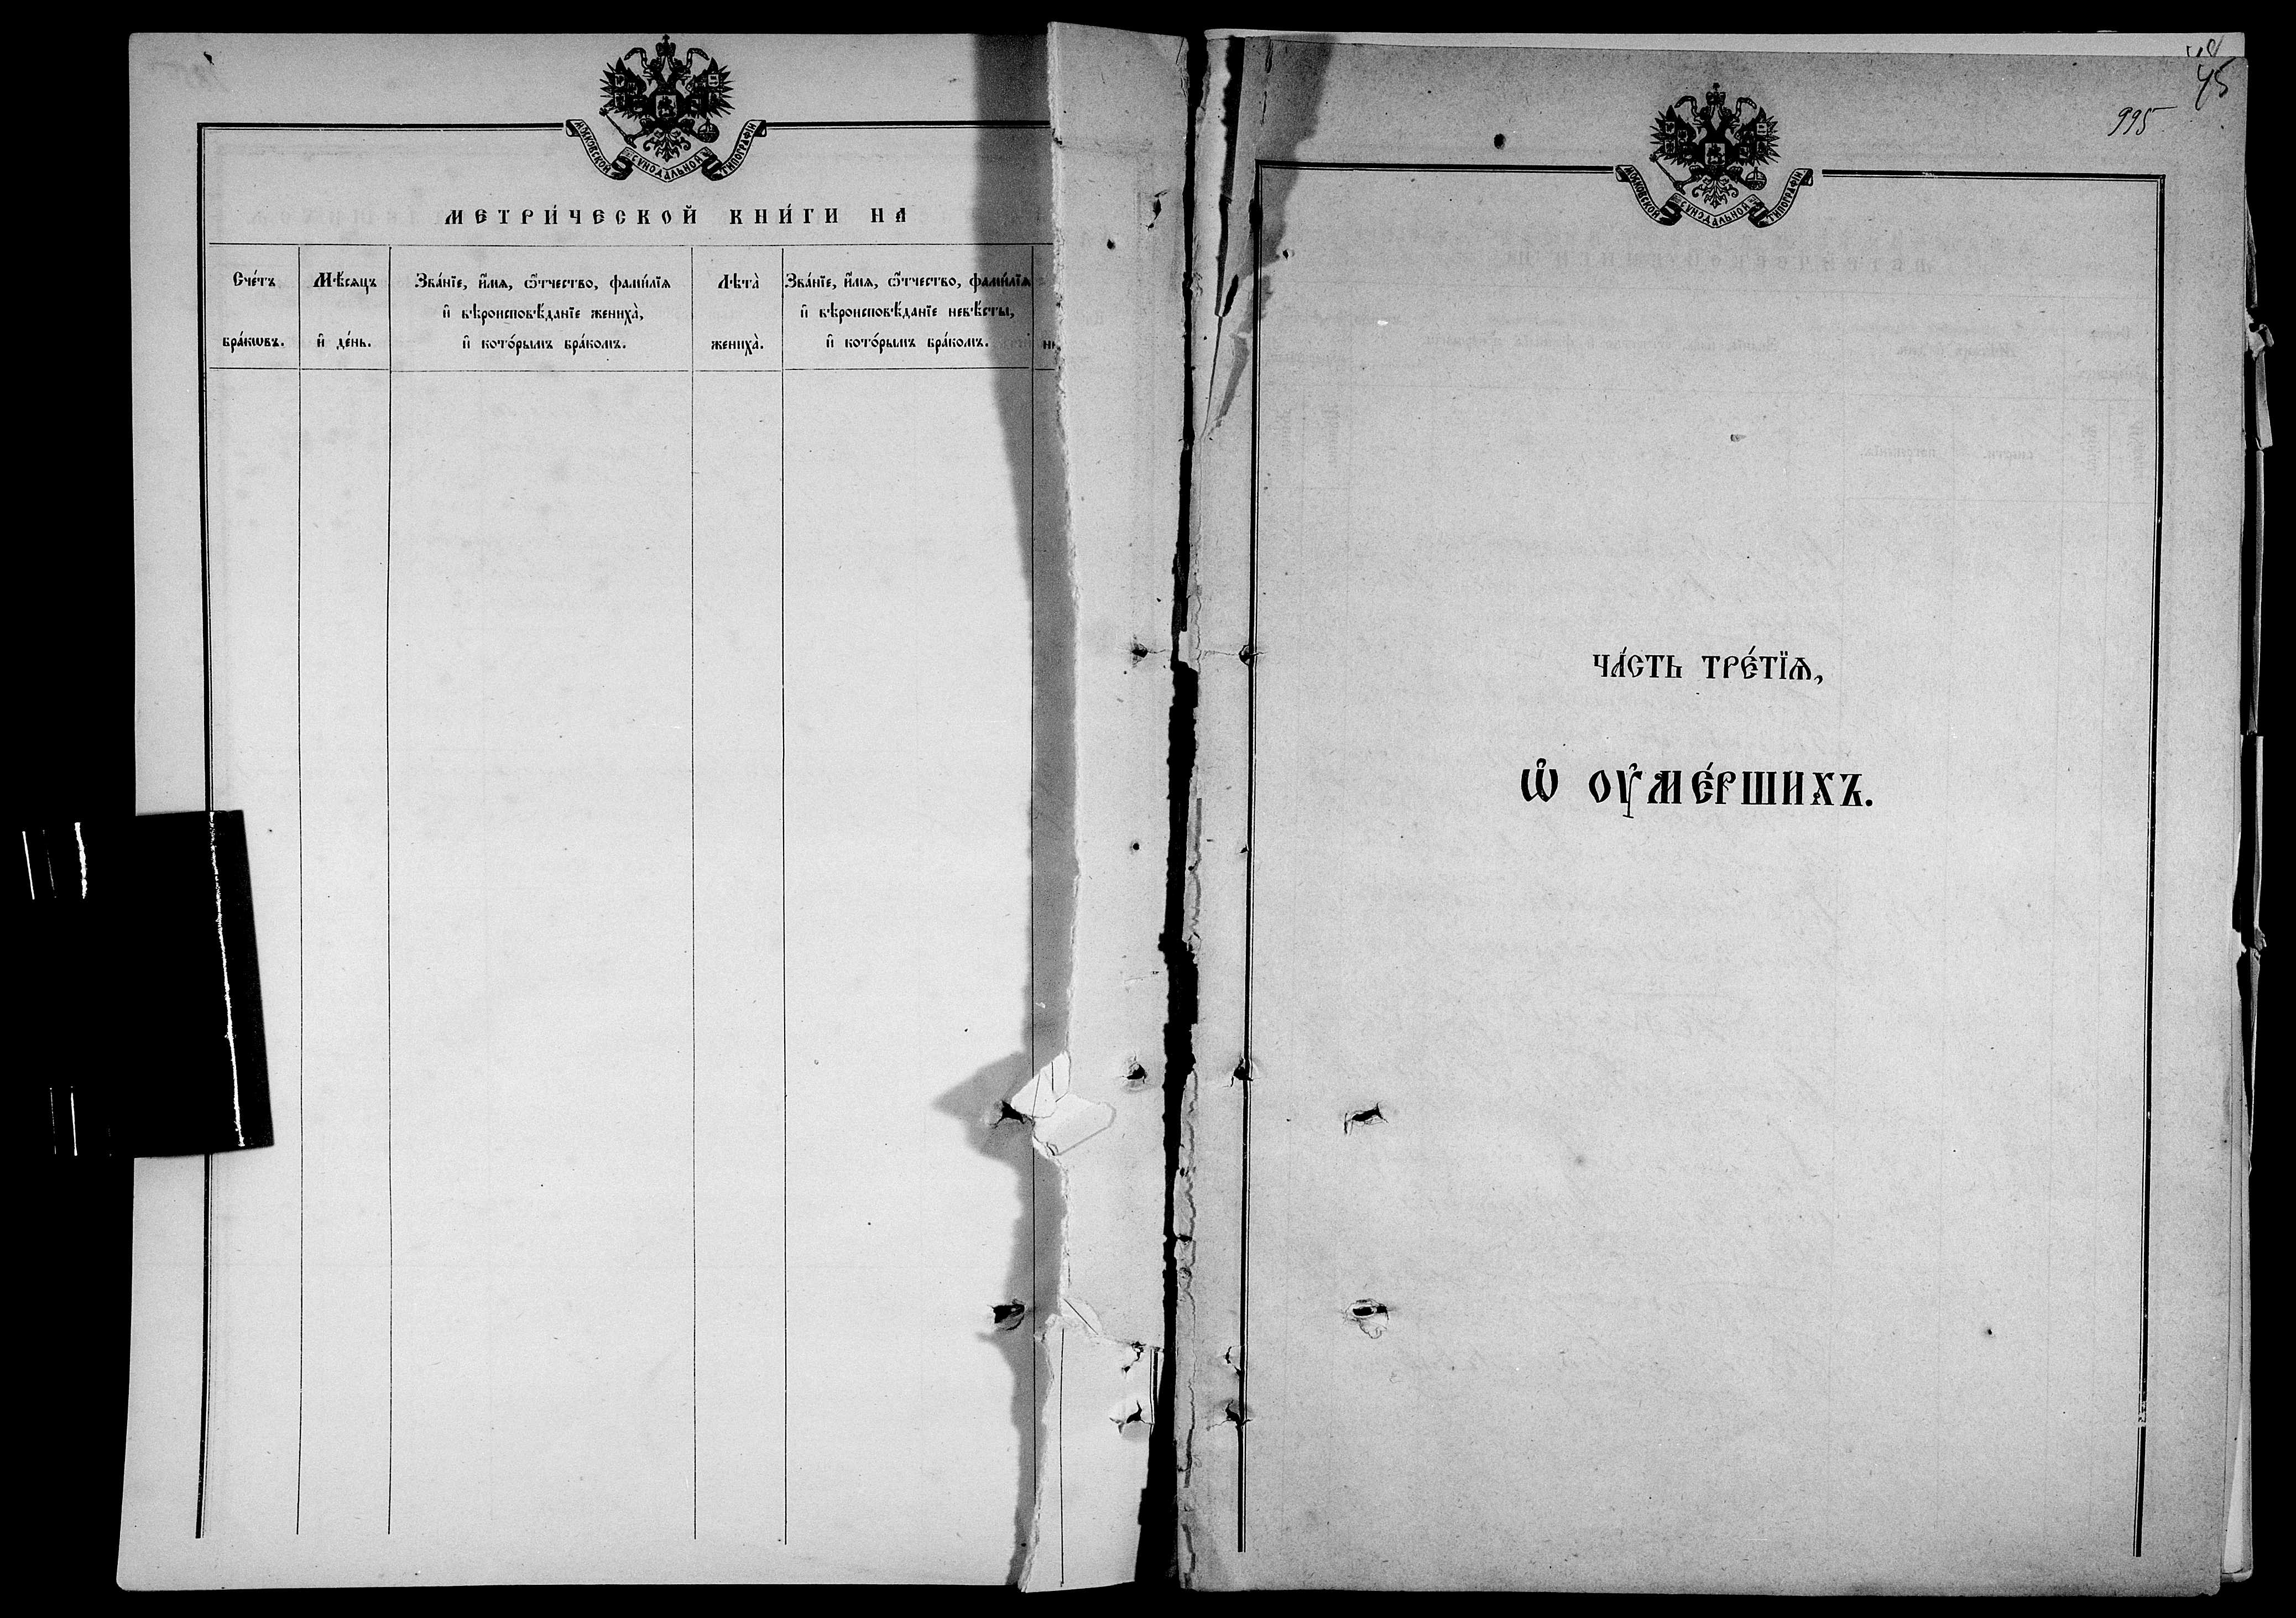 МОСКОВСКОЙ СѴНОДАЛЬНОЙ ТИПОГРАФІИ
МЕТРИ́ЧЕСКОЙ КНИ́ГИ НА
Сче́тъ
бра́кѡвъ.
Мѣ́сяцъ
и҆ де́нь.
Зва́нїе, и҆́мѧ, ѻ҆́тчество, фами́лїѧ
и҆ вѣроисповѣ́данїе жениха̀,
и҆ кото́рымъ бра́комъ.
Лѣта̀
жениха̀.
Зва́нїе, и҆́мѧ, ѻ҆́тчество, фами́лїѧ
и҆ вѣроисповѣ́данїе невѣ́сты,
и҆ кото́рымъ бра́комъ.
45
995
МОСКОВСКОЙ СѴНОДАЛЬНОЙ ТИПОГРАФІИ
ЧА́СТЬ ТРЕ́ТЇѦ,
Ѽ ОУ҆МЕ́РШИХЪ.